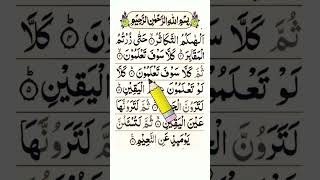 بِسْمِ اللهِ الرَّحْمٰنِ الرَّحِيْمِ
اَلْهٰىكُمُ التَّكَاثُرُ ۙ حَتّٰى زُرْتُمُ
الْمَقَابِرَ ؕ كَلَّا سَوْفَ تَعْلَمُوْنَ ۙ
ثُمَّ كَلَّا سَوْفَ تَعْلَمُوْنَ ؕ كَلَّا
لَوْ تَعْلَمُوْنَ الْيَقِيْنِ ؕ
لَتَرَوُنَّ ثُمَّ لَتَرَوُنَّهَا
عَيْنَ الْيَقِيْنِ ۙ ثُمَّ لَتُسْـَٔلُنَّ
يَوْمَئِذٍ عَنِ النَّعِيْمِ